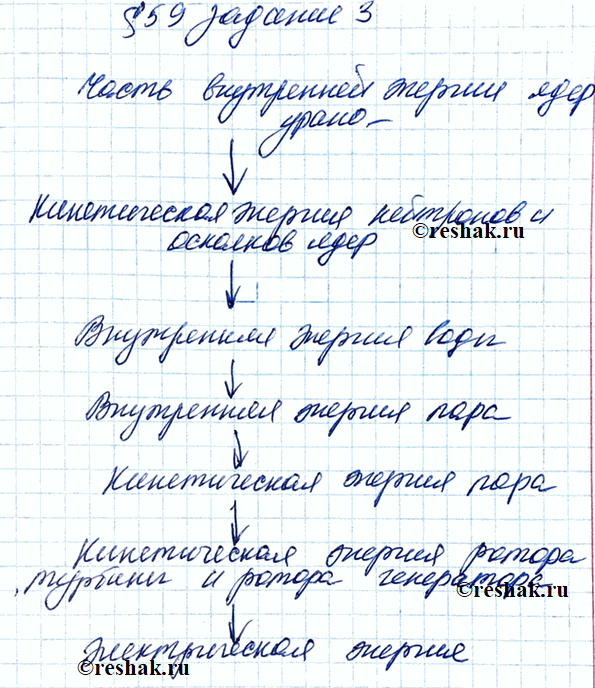 §59 задание 3
Часть внутренней энергии ядер
урана
Кинетическая энергия нейтронов и
осколков ядер
©reshak.ru
Внутренняя энергия воды
Внутренняя энергия пара
Кинетическая энергия пара
Кинетическая энергия ротора
турбины и ротора генератора
©reshak.ru
Электрическая энергия
©reshak.ru